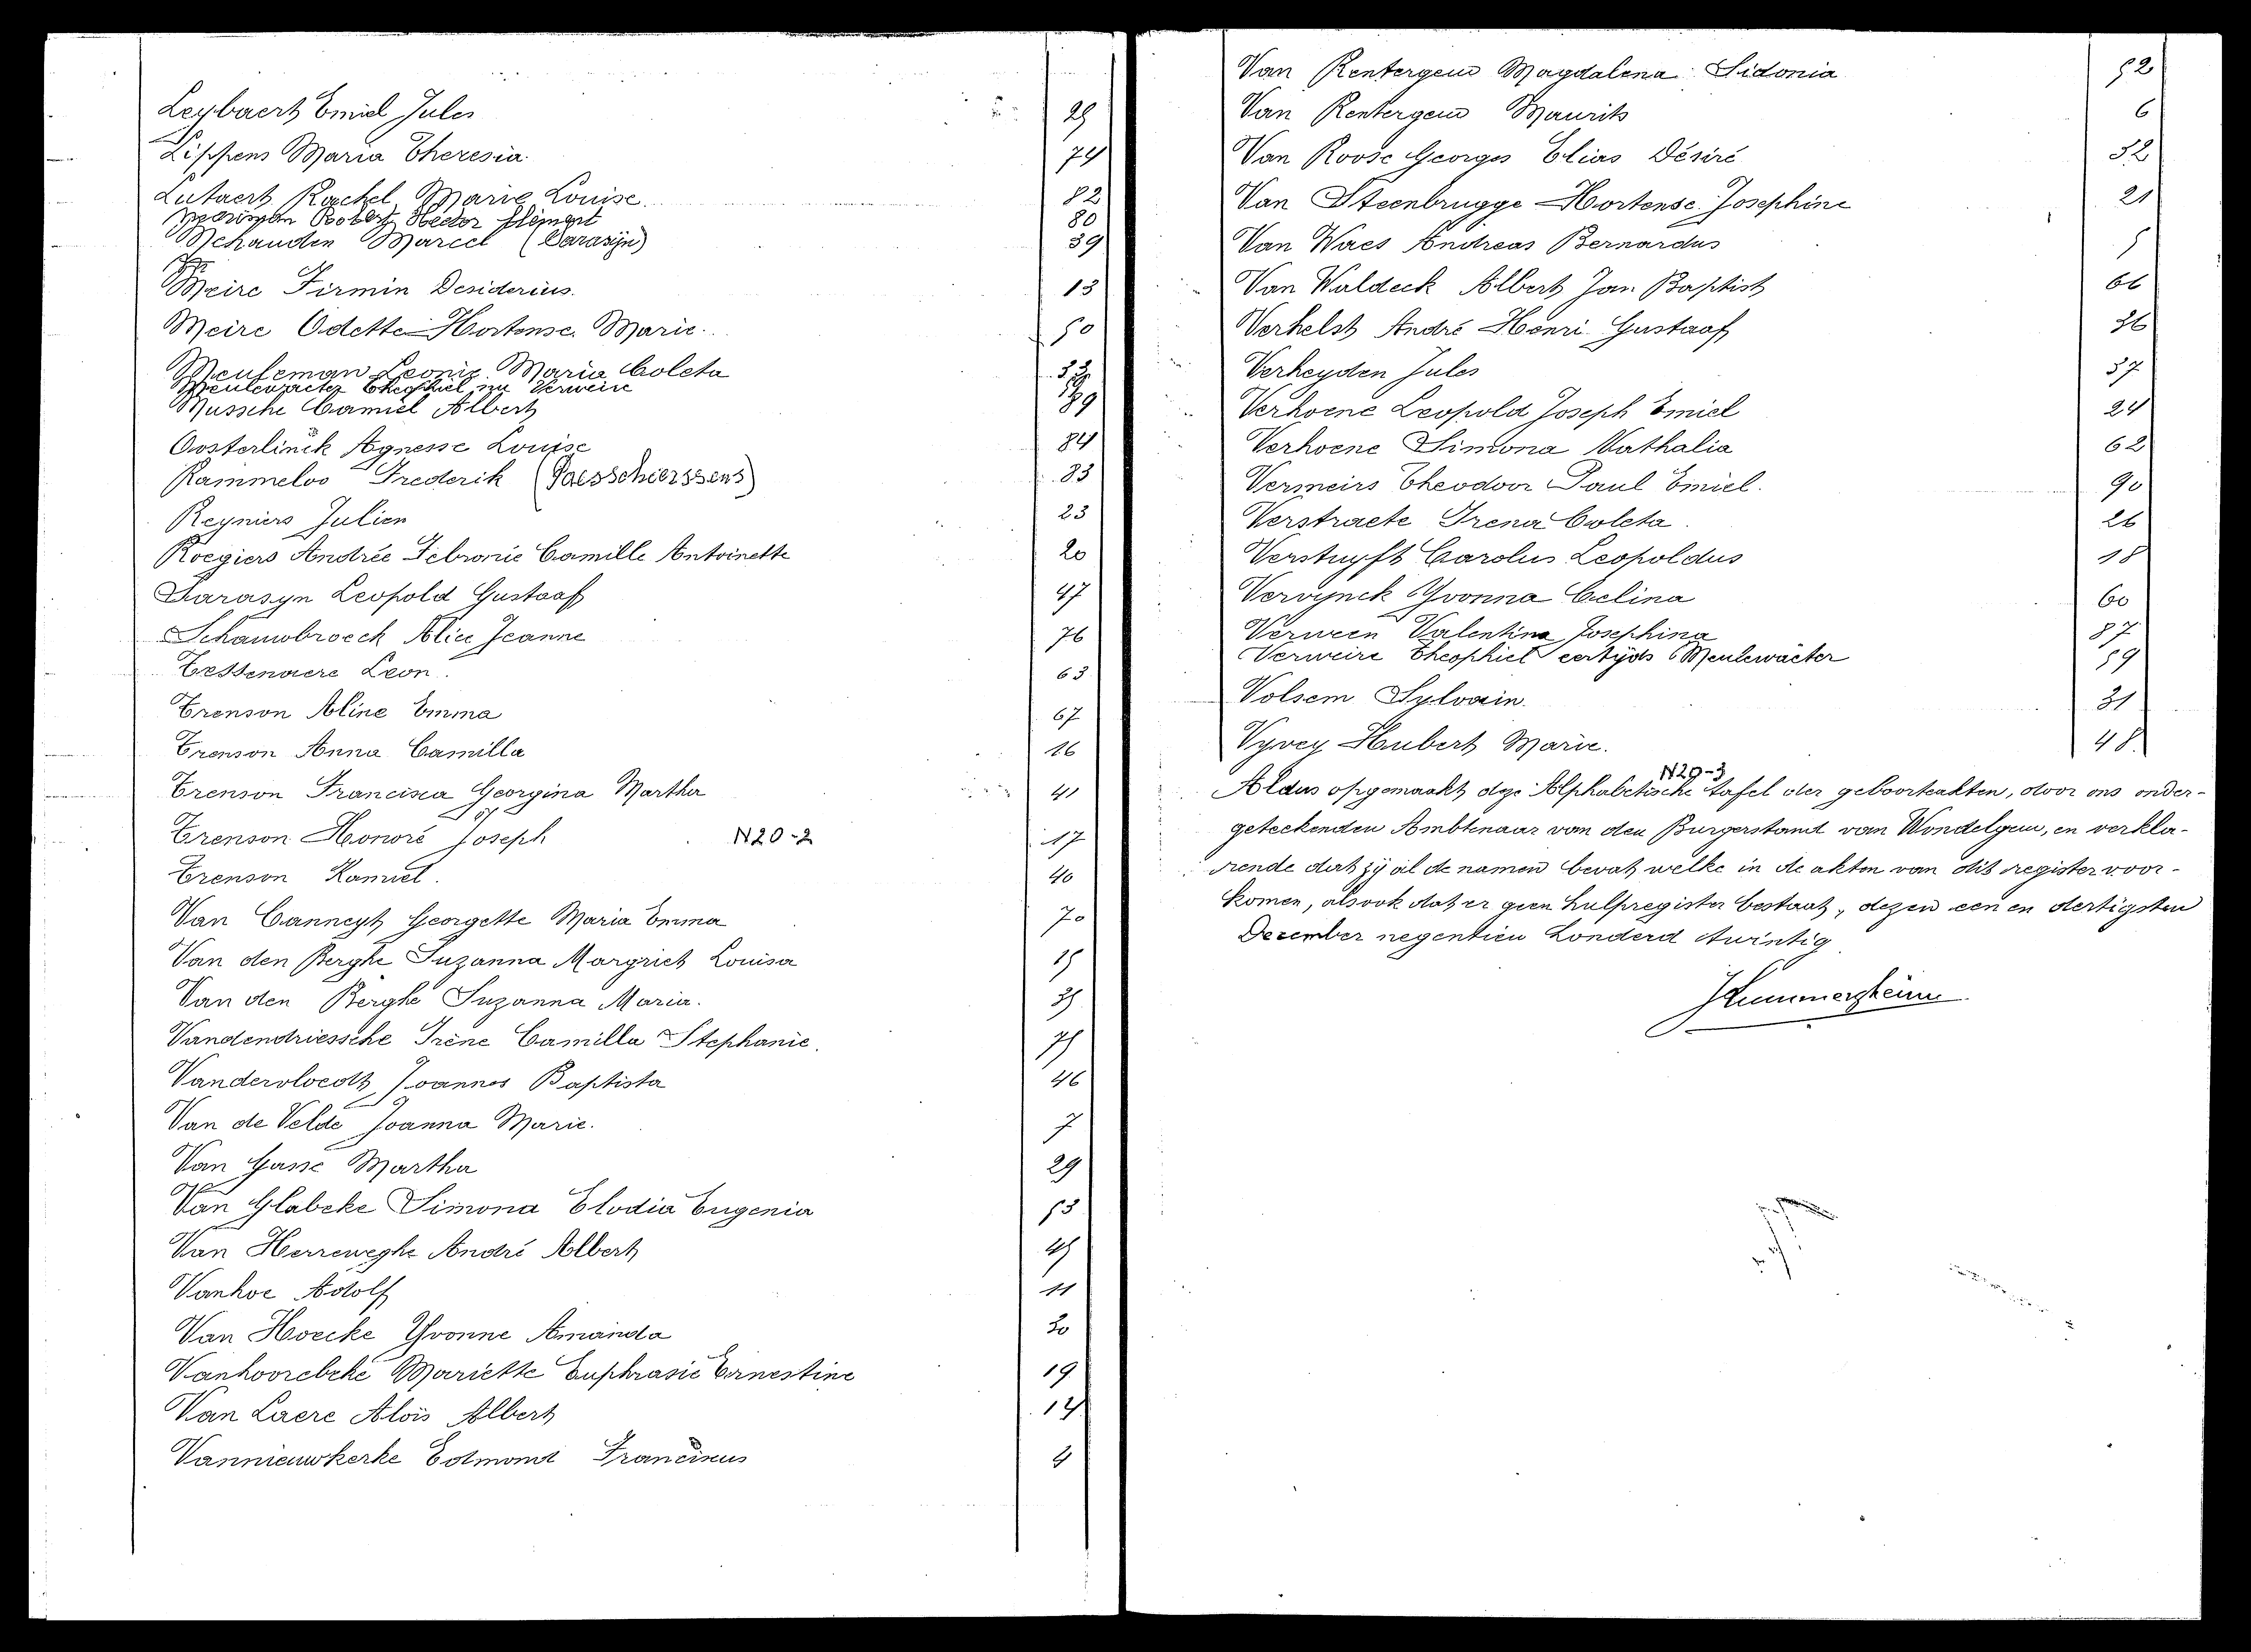 Leybaert Emiel Jules 25
Lippens Maria Theresia 74
Lutaert Rachel Marie Louise 82
Merisman Robert Hector Clément 80
Mehauden Marcel (Sarasijn) 39
Meire Firmin Desiderius. 13
Meire Odette Hortense Marie. 50
Meuleman Leonie Maria Coleta 33
Meulewaeter Theophiel nu Verweire 59
Mussche Camiel Albert 89
Oosterlinck Agnesse Louise 84
Rammeloo Frederik (Paesschierssens) 83
Reyniers Julien 23
Roegiers Andrée Febronie Camille Antoinette 20
Sarasyn Leopold Gustaaf 47
Schauwbroeck Alice Jeanne 76
Tessenaere Leon. 63
Trenson Aline Emma 67
Trenson Anna Camilla 16
Trenson Francisca Georgina Martha 41
Trenson Honoré Joseph N20-2 17
Trenson Kamiel. 40
Van Canneyt Georgette Maria Emma 70
Van den Berghe Suzanna Margriet Louisa 15
Van den Berghe Suzanna Maria. 35
Vandendriessche Irène Camilla Stephanie. 75
Vandervloedt Joannes Baptista 46
Van de Velde Joanna Marie. 7
Van Gasse Martha 29
Van Glabeke Simona Elodia Eugenia 53
Van Herreweghe André Albert 45
Vanhoe Adolf 11
Van Hoecke Yvonne Amanda 30
Vanhoorebeke Mariette Euphrasie Ernestine 19
Van Laere Aloïs Albert 14
Vannieuwkerke Edmond Franciscus 4
Van Rentergem Magdalena Sidonia 52
Van Rentergem Maurits 6
Van Roose Georges Elias Désiré 32
Van Steenbrugge Hortense Josephine 21
Van Waes Andreas Bernardus 5
Van Waldeck Albert Jan Baptist 66
Verhelst André Henri Gustaaf 36
Verheyden Jules 37
Verhoene Leopold Joseph Emiel 24
Verhoene Simona Nathalia 62
Vermeirs Theodoor Paul Emiel. 90
Verstraete Irena Coleta. 26
Verstuyft Carolus Leopoldus 18
Vervynck Yvonna Celina 60
Verween Valentina Josephina 87
Verweire Theophiel eertijds Meulewaeter 59
Volsem Sylvain. 31
Vyvey Hubert Marie. 48.
N20-3
Aldus opgemaakt deze Alphabetische tafel der geboorteakten, door ons onder-
geteekenden Ambtenaar van den Burgerstand van Wondelgem, en verkla-
rende dat zij al de namen bevat welke in de akten van dit register voor-
komen, alsook dat er geen hulpregister bestaat, dezen een en dertigsten
December negentien honderd twintig